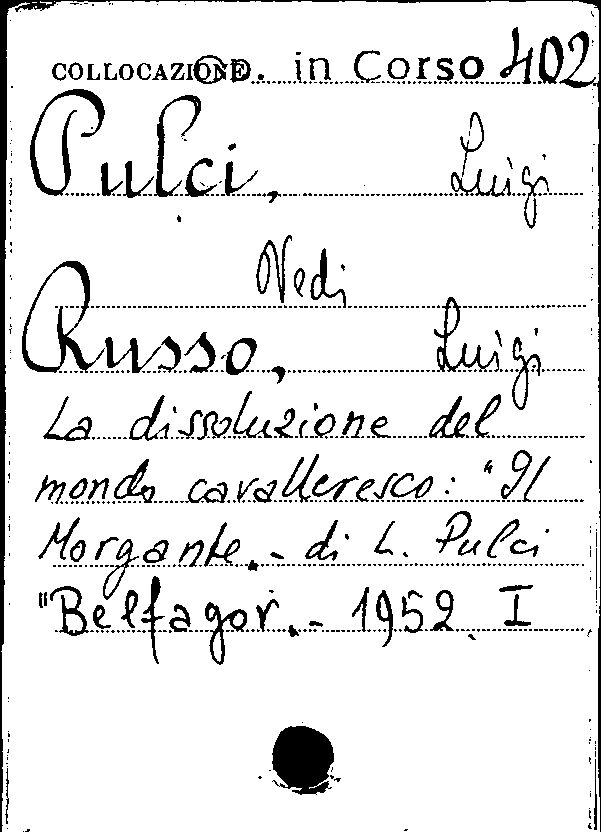 COLLOCAZIONE P. in Corso 402
Pulci, Luigi
Vedi
Russo, Luigi
La dissoluzione del
mondo cavalleresco: "Il
Morgante.- di L. Pulci
"Belfagor.- 1952 I